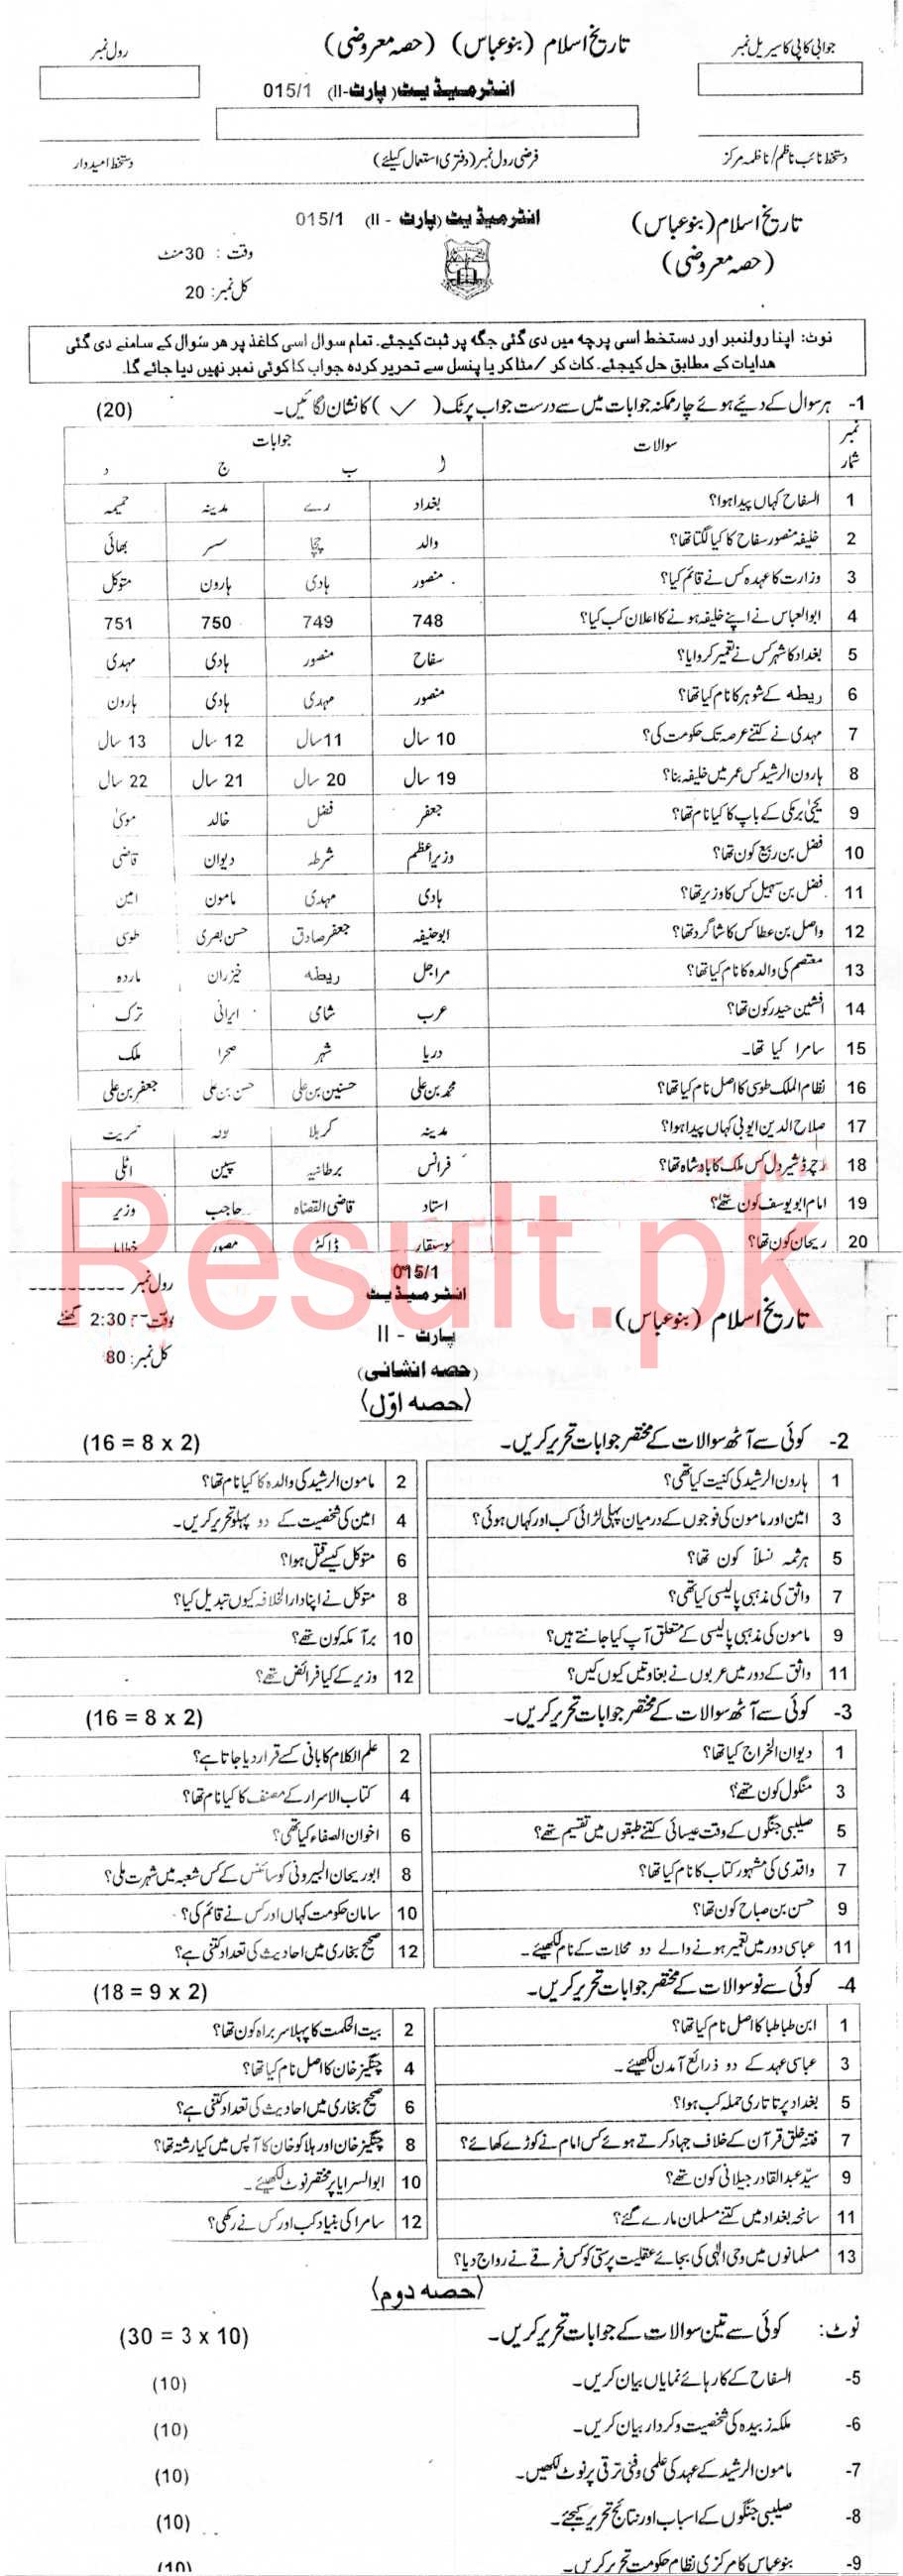 جوابی کاپی کا سیریل نمبر
تاریخ اسلام (بنو عباس) (حصہ معروضی)
رول نمبر
انٹرمیڈیٹ (پارٹ-II) 015/1
دستخط نائب ناظم/ناظمہ مرکز
فرضی رول نمبر (دفتری استعمال کیلئے)
دستخط امیدوار
تاریخ اسلام (بنو عباس)
انٹرمیڈیٹ (پارٹ - II) 015/1
(حصہ معروضی)
وقت : 30 منٹ
کل نمبر: 20
نوٹ: اپنا رولنمبر اور دستخط اسی پرچہ میں دی گئی جگہ پر ثبت کیجئے۔ تمام سوال اسی کاغذ پر ھر سوال کے سامنے دی گئی
ھدایات کے مطابق حل کیجئے۔ کاٹ کر /مٹا کر یا پنسل سے تحریر کردہ جواب کا کوئی نمبر نہیں دیا جائے گا۔
1- ہر سوال کے دیئے ہوئے چار ممکنہ جوابات میں سے درست جواب پر ٹک ( ✓ ) کا نشان لگائیں۔ (20)
نمبر شمار سوالات جوابات
ا ب ج د
1 السفاح کہاں پیدا ہوا؟ بغداد رے مدینہ حمیمہ
2 خلیفہ منصور سفاح کا کیا لگتا تھا؟ والد چچا سسر بھائی
3 وزارت کا عہدہ کس نے قائم کیا؟ منصور ہادی ہارون متوکل
4 ابوالعباس نے اپنے خلیفہ ہونے کا اعلان کب کیا؟ 748 749 750 751
5 بغداد کا شہر کس نے تعمیر کروایا؟ سفاح منصور ہادی مہدی
6 ریطہ کے شوہر کا نام کیا تھا؟ منصور مہدی ہادی ہارون
7 مہدی نے کتنے عرصہ تک حکومت کی؟ 10 سال 11 سال 12 سال 13 سال
8 ہارون الرشید کس عمر میں خلیفہ بنا؟ 19 سال 20 سال 21 سال 22 سال
9 یحییٰ برمکی کے باپ کا کیا نام تھا؟ جعفر فضل خالد موسیٰ
10 فضل بن ربیع کون تھا؟ وزیراعظم شرطہ دیوان قاضی
11 فضل بن سہیل کس کا وزیر تھا؟ ہادی مہدی مامون امین
12 واصل بن عطا کس کا شاگرد تھا؟ ابوحنیفہ جعفر صادق حسن بصری طوسی
13 معتصم کی والدہ کا نام کیا تھا؟ مراجل ریطہ خیزران ماردہ
14 افشین حیدر کون تھا؟ عرب شامی ایرانی ترک
15 سامرا کیا تھا۔ دریا شہر صحرا ملک
16 نظام الملک طوسی کا اصل نام کیا تھا؟ محمد بن علی حسنین بن علی حسن بن علی جعفر بن علی
17 صلاح الدین ایوبی کہاں پیدا ہوا؟ مدینہ کربلا تکریت
18 رچرڈ شیر دل کس ملک کا بادشاہ تھا؟ فرانس برطانیہ سپین اٹلی
19 امام ابو یوسف کون تھے؟ استاد قاضی القضاہ حاجب وزیر
20 ریحان کون تھا؟ موسیقار ڈاکٹر مصور خطاط
Result.pk
015/1
رول نمبر
انٹرمیڈیٹ
تاریخ اسلام (بنو عباس)
وقت 2:30 گھنٹے
پارٹ - II
کل نمبر: 80
(حصہ انشائی)
(حصہ اوّل)
2- کوئی سے آٹھ سوالات کے مختصر جوابات تحریر کریں۔ (16 = 8 x 2)
1 ہارون الرشید کی کنیت کیا تھی؟ 2 مامون الرشید کی والدہ کا کیا نام تھا؟
3 امین اور مامون کی فوجوں کے درمیان پہلی لڑائی کب اور کہاں ہوئی؟ 4 امین کی شخصیت کے دو پہلو تحریر کریں۔
5 ہرثمہ نسلاً کون تھا؟ 6 متوکل کیسے قتل ہوا؟
7 واثق کی مذہبی پالیسی کیا تھی؟ 8 متوکل نے اپنا دارالخلافہ کیوں تبدیل کیا؟
9 مامون کی مذہبی پالیسی کے متعلق آپ کیا جانتے ہیں؟ 10 برامکہ کون تھے؟
11 واثق کے دور میں عربوں نے بغاوتیں کیوں کیں؟ 12 وزیر کے کیا فرائض تھے؟
3- کوئی سے آٹھ سوالات کے مختصر جوابات تحریر کریں۔ (16 = 8 x 2)
1 دیوان الخراج کیا تھا؟ 2 علم الکلام کا بانی کسے قرار دیا جاتا ہے؟
3 منگول کون تھے؟ 4 کتاب الاسرار کے مصنف کا کیا نام تھا؟
5 صلیبی جنگوں کے وقت عیسائی کتنے طبقوں میں تقسیم تھے؟ 6 اخوان الصفاء کیا تھی؟
7 واقدی کی مشہور کتاب کا نام کیا تھا؟ 8 ابو ریحان البیرونی کو سائنس کے کس شعبہ میں شہرت ملی؟
9 حسن بن صباح کون تھا؟ 10 سامان حکومت کہاں اور کس نے قائم کی؟
11 عباسی دور میں تعمیر ہونے والے دو محلات کے نام لکھیئے۔ 12 صحیح بخاری میں احادیث کی تعداد کتنی ہے؟
4- کوئی سے نو سوالات کے مختصر جوابات تحریر کریں۔ (18 = 9 x 2)
1 ابن طباطبا کا اصل نام کیا تھا؟ 2 بیت الحکمت کا پہلا سربراہ کون تھا؟
3 عباسی عہد کے دو ذرائع آمدن لکھیئے۔ 4 چنگیز خان کا اصل نام کیا تھا؟
5 بغداد پر تاتاری حملہ کب ہوا؟ 6 صحیح بخاری میں احادیث کی تعداد کتنی ہے؟
7 فتنہ خلق قرآن کے خلاف جہاد کرتے ہوئے کس امام نے کوڑے کھائے؟ 8 چنگیز خان اور ہلاکو خان کا آپس میں کیا رشتہ تھا؟
9 سیّد عبدالقادر جیلانی کون تھے؟ 10 ابوالسرایا پر مختصر نوٹ لکھیئے۔
11 سانحہ بغداد میں کتنے مسلمان مارے گئے؟ 12 سامرا کی بنیاد کب اور کس نے رکھی؟
13 مسلمانوں میں وحی الٰہی کی بجائے عقلیت پرستی کو کس فرقے نے رواج دیا؟
(حصہ دوم)
نوٹ: کوئی سے تین سوالات کے جوابات تحریر کریں۔ (30 = 3 x 10)
5- السفاح کے کارہائے نمایاں بیان کریں۔ (10)
6- ملکہ زبیدہ کی شخصیت و کردار بیان کریں۔ (10)
7- مامون الرشید کے عہد کی علمی و فنی ترقی پر نوٹ لکھیں۔ (10)
8- صلیبی جنگوں کے اسباب اور نتائج تحریر کیجئے۔ (10)
9- بنو عباس کا مرکزی نظام حکومت تحریر کریں۔ (10)